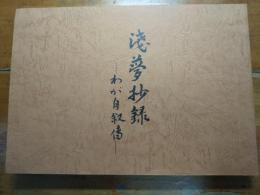 浅夢抄録
—わが自叙傳—